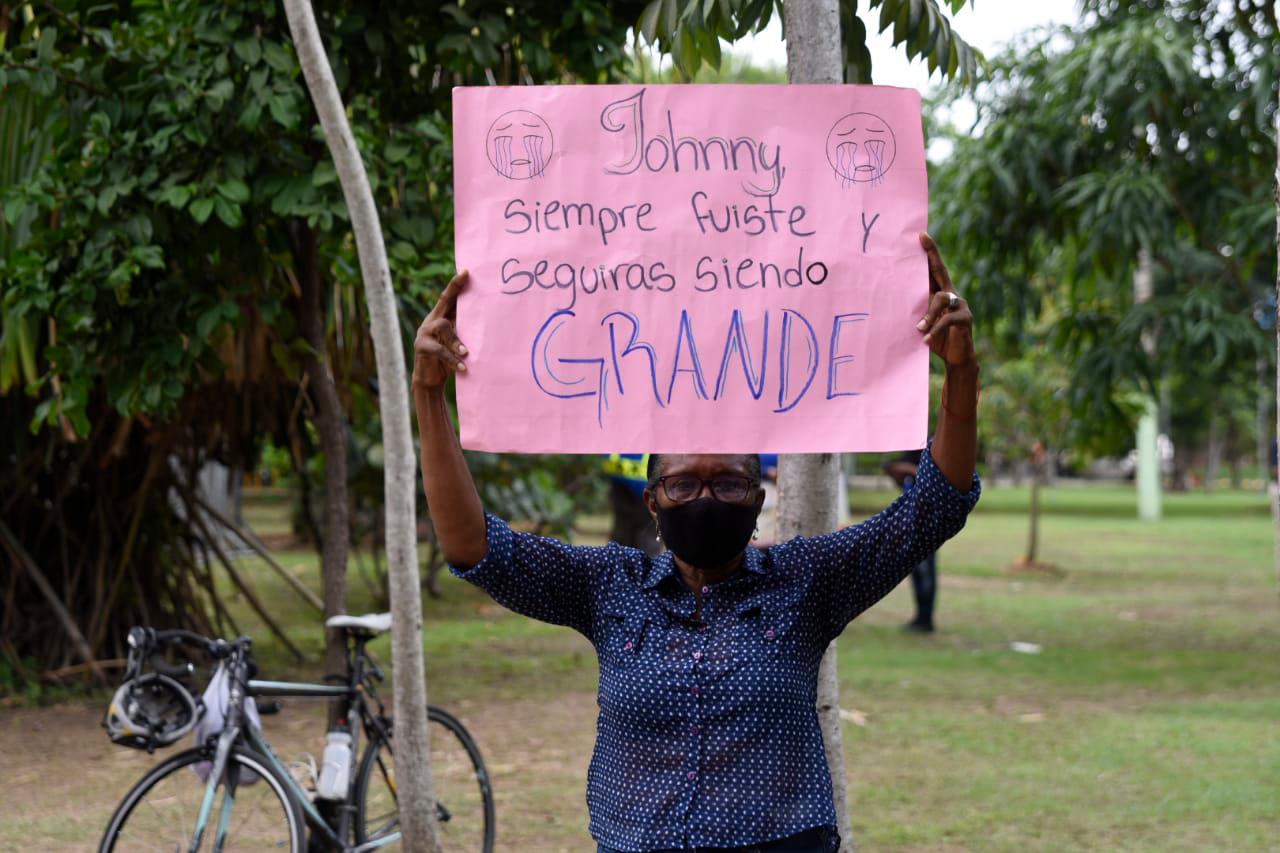 Johnny,
siempre fuiste y
seguiras siendo
GRANDE